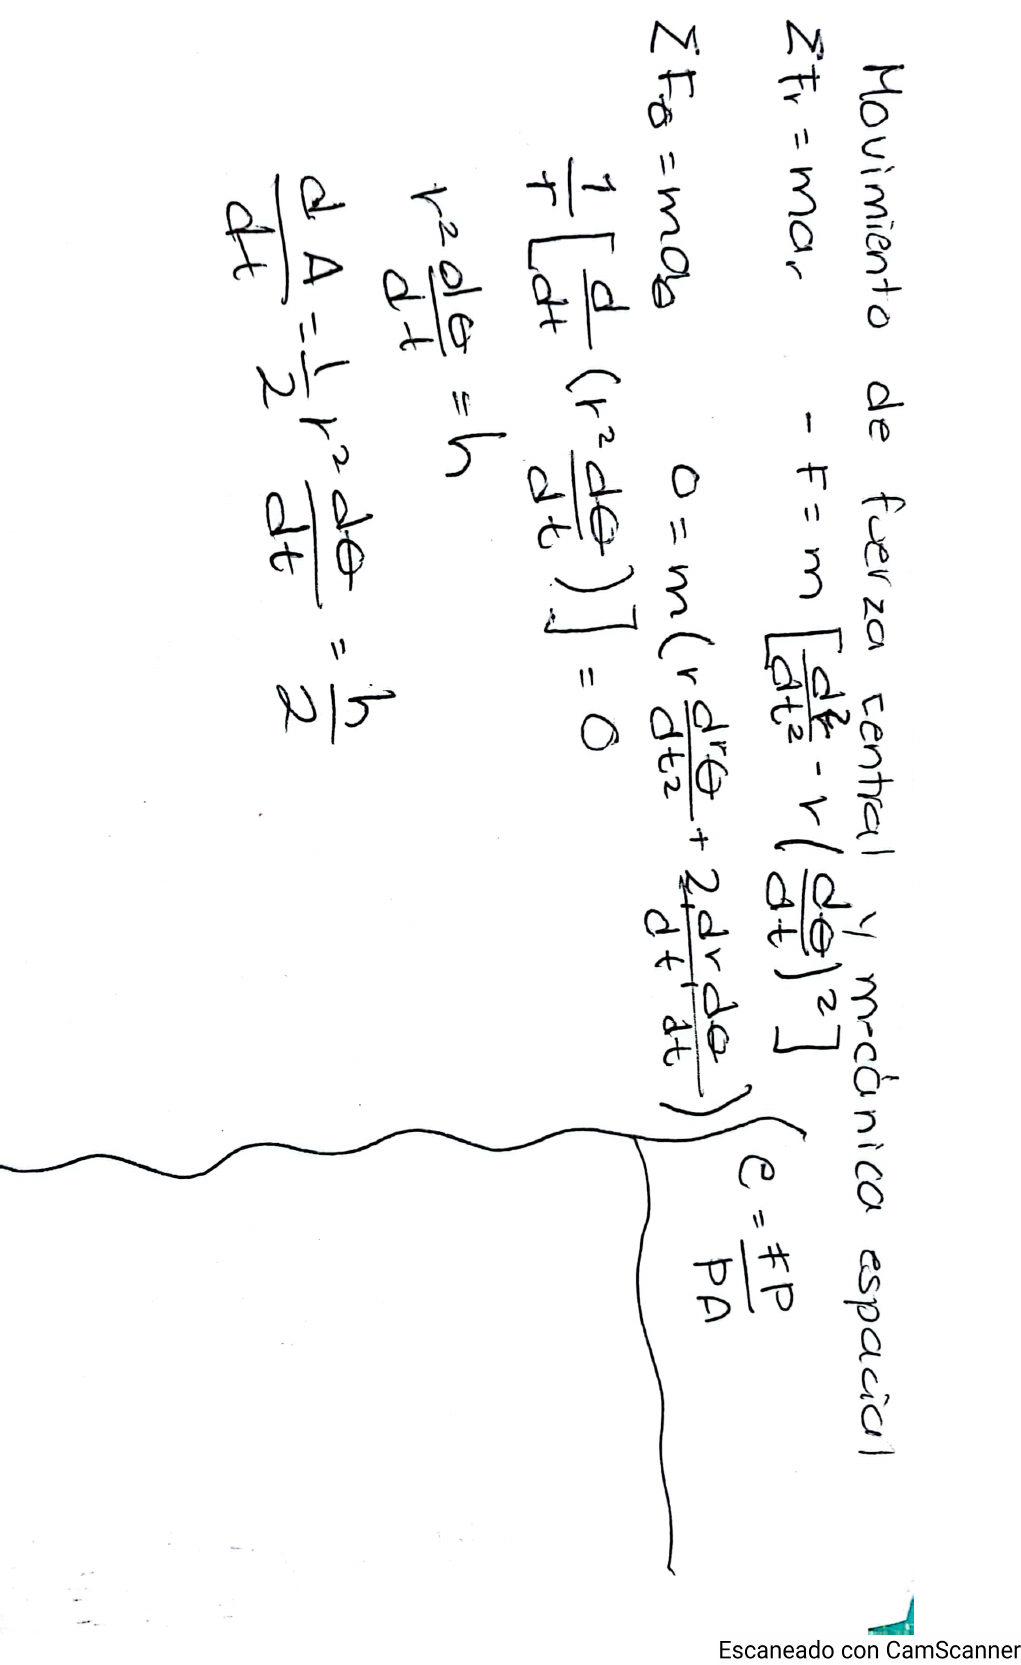 Movimiento de fuerza central y mecánica espacial
ΣFr = mar   - F = m [d²r/dt² - r (dθ/dt)²]
ΣFθ = maθ   0 = m (r d²θ/dt² + 2 dr/dt dθ/dt)
1/r [d/dt (r² dθ/dt)] = 0
r² dθ/dt = h
dA/dt = 1/2 r² dθ/dt = h/2
e = FP/PA
Escaneado con CamScanner